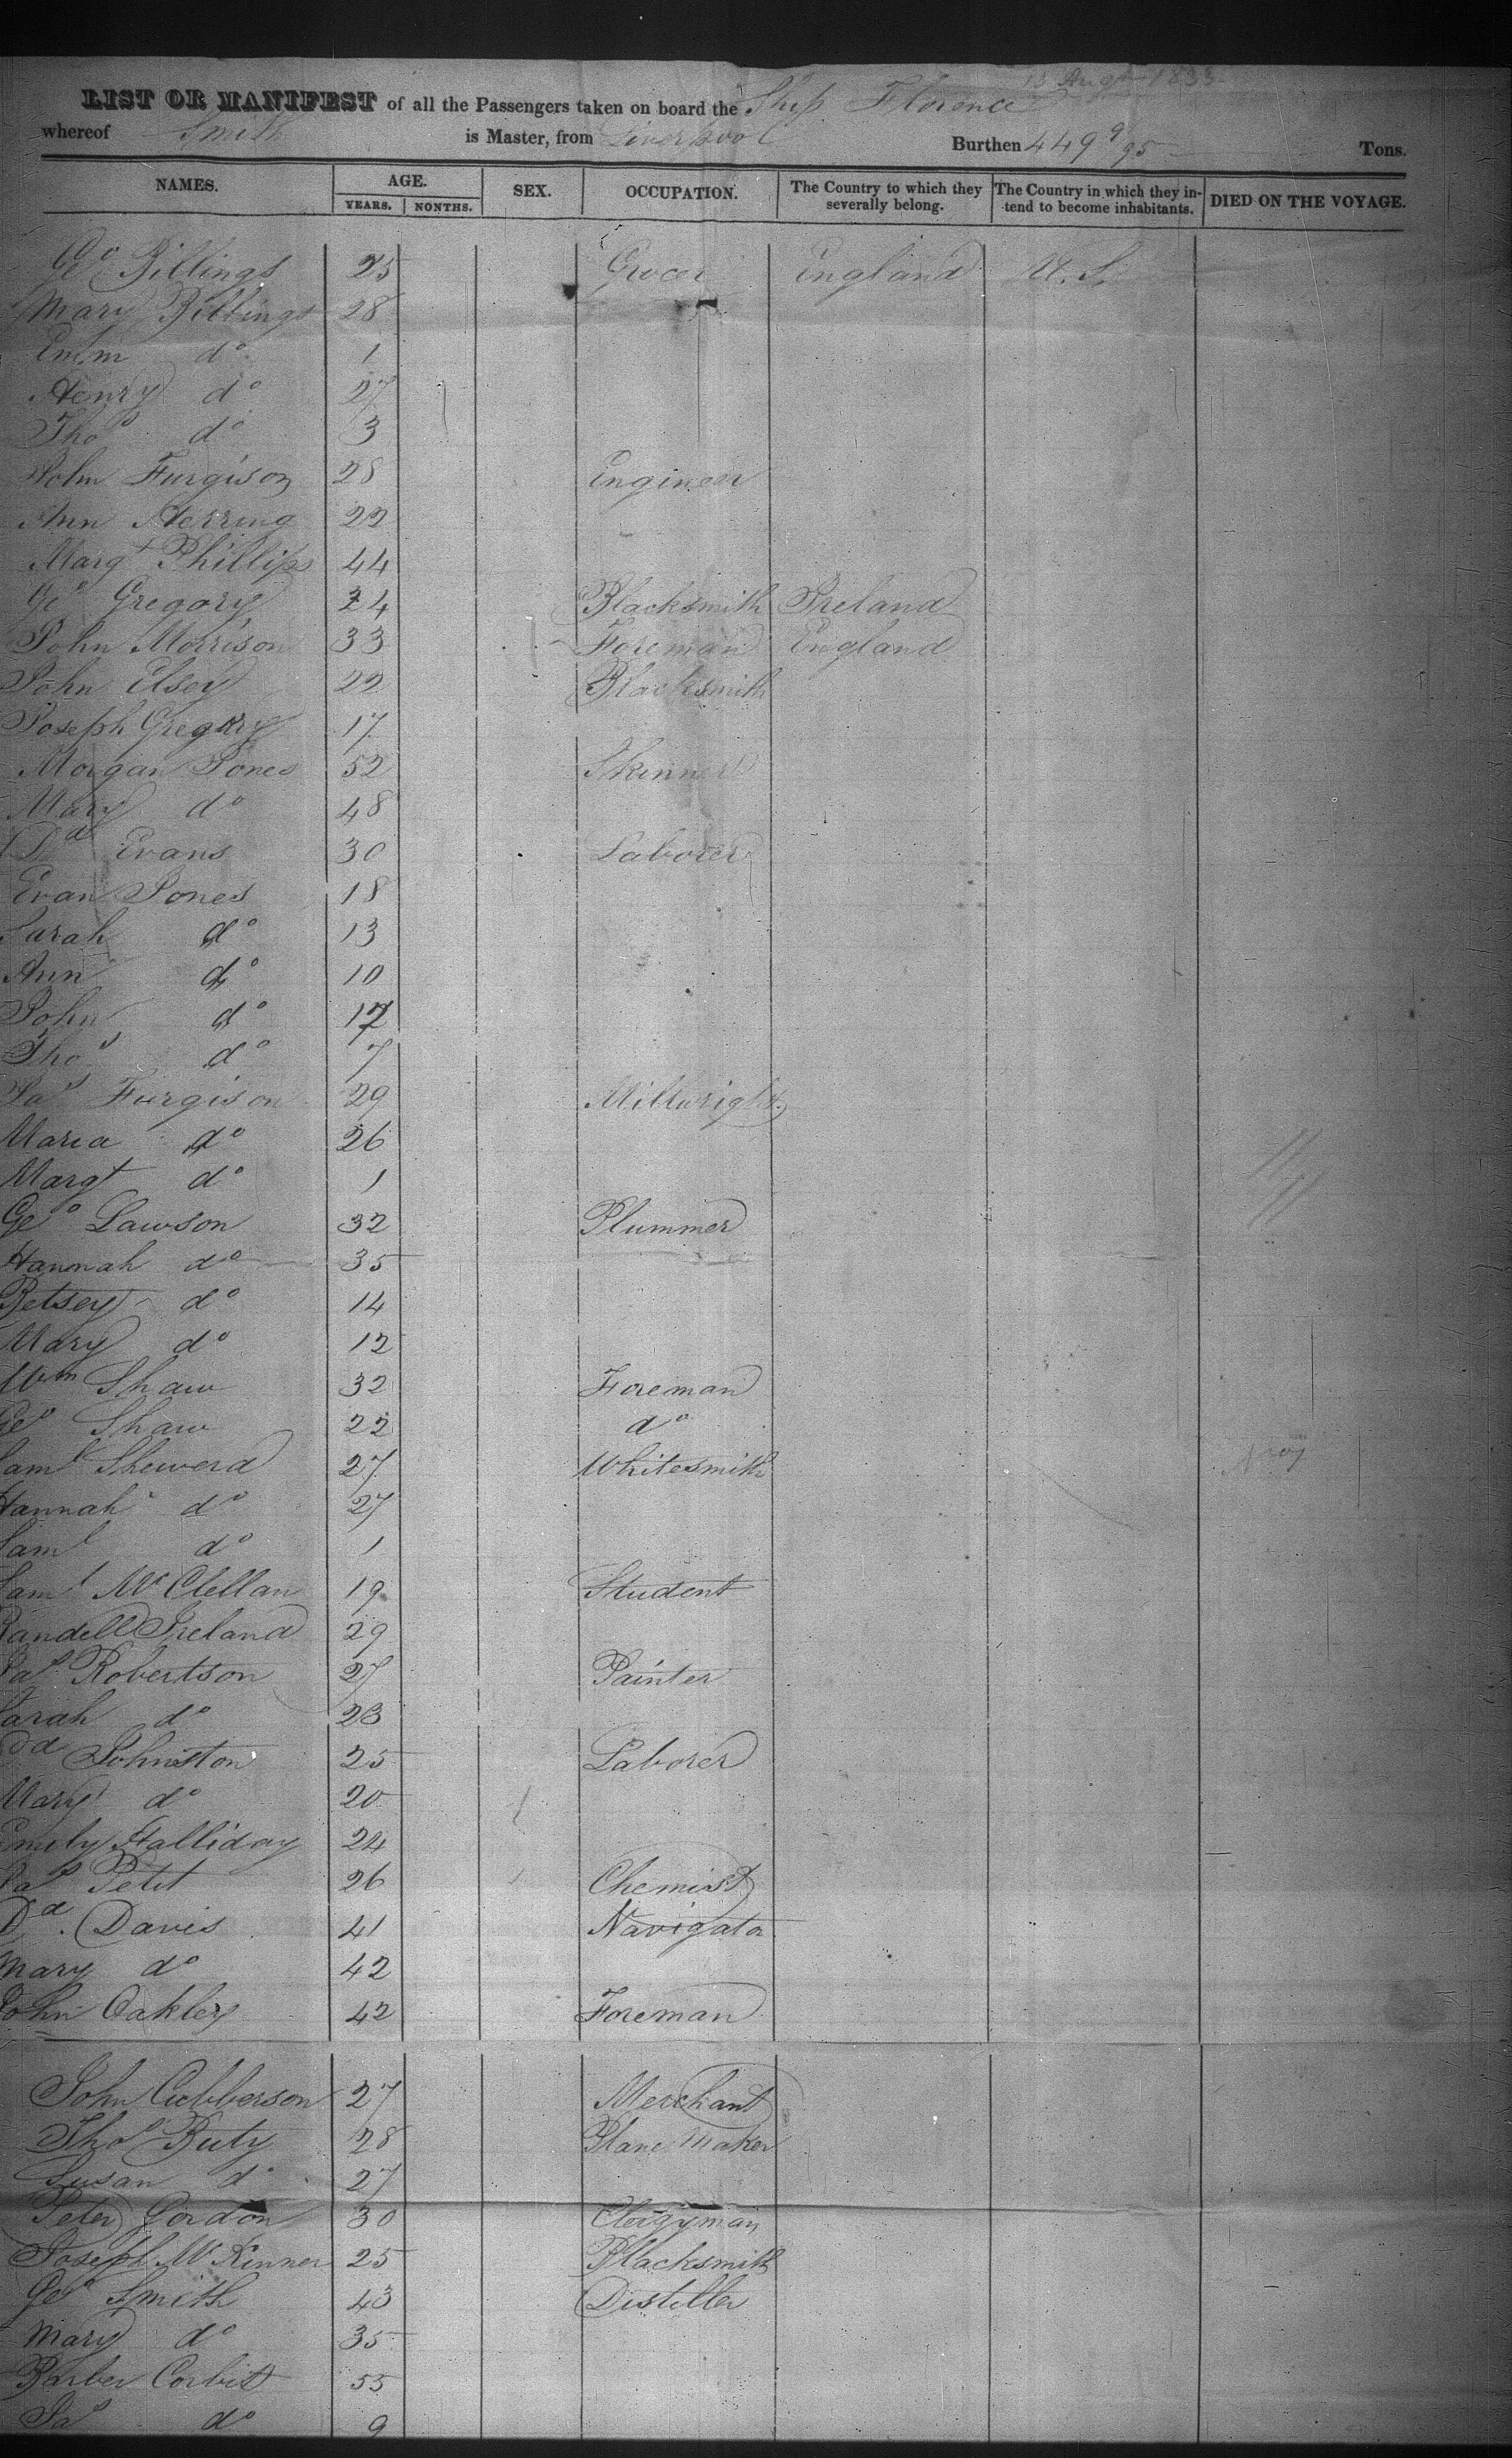 13 Augt 1833
LIST OR MANIFEST of all the Passengers taken on board the Ship Florence
whereof Smith is Master, from Liverpool Burthen 449 9/95 Tons.
NAMES. AGE. SEX. OCCUPATION. The Country to which they severally belong. The Country in which they intend to become inhabitants. DIED ON THE VOYAGE.
YEARS. MONTHS.
Geo Billings 25 Grocer England U.S.
Mary Billings 28
Em,m do 1
Henry do 27
Thos do 3
John Furgison 28 Engineer
Ann Herring 22
Margt Phillips 44
Geo Gregory 24 Blacksmith Ireland
John Morrison 33 Foreman England
John Elsey 22 Blacksmith
Joseph Gregory 17
Morgan Jones 52 Skinner
Mary do 48
Dd Evans 30 Laborer
Evan Jones 18
Sarah do 13
Ann do 10
John do 17
Thos do 7
Jas Furgison 29 Millwright
Maria do 26
Margt do 1
Geo Lawson 32 Plummer
Hannah do 35
Betsey do 14
Mary do 12
Wm Shaw 32 Foreman
Geo Shaw 22 do
Saml Sheward 27 Whitesmith
Hannah do 27
Saml do 1
Saml McClellan 19 Student
Randell Ireland 29
Jas Robertson 27 Painter
Sarah do 23
Edd Johnston 25 Laborer
Mary do 20
Emily Halliday 24
Jas Petit 26 Chemist
Dd Davis 41 Navigator
Mary do 42
John Oakley 42 Foreman
John Cubberson 27 Merchant
Thos Buty 28 Plane Maker
Susan do 27
Peter Gordon 30 Clergyman
Joseph McKinner 25 Blacksmith
Geo Smith 43 Distiller
Mary do 35
Barber Corbitt 55
Jas do 9